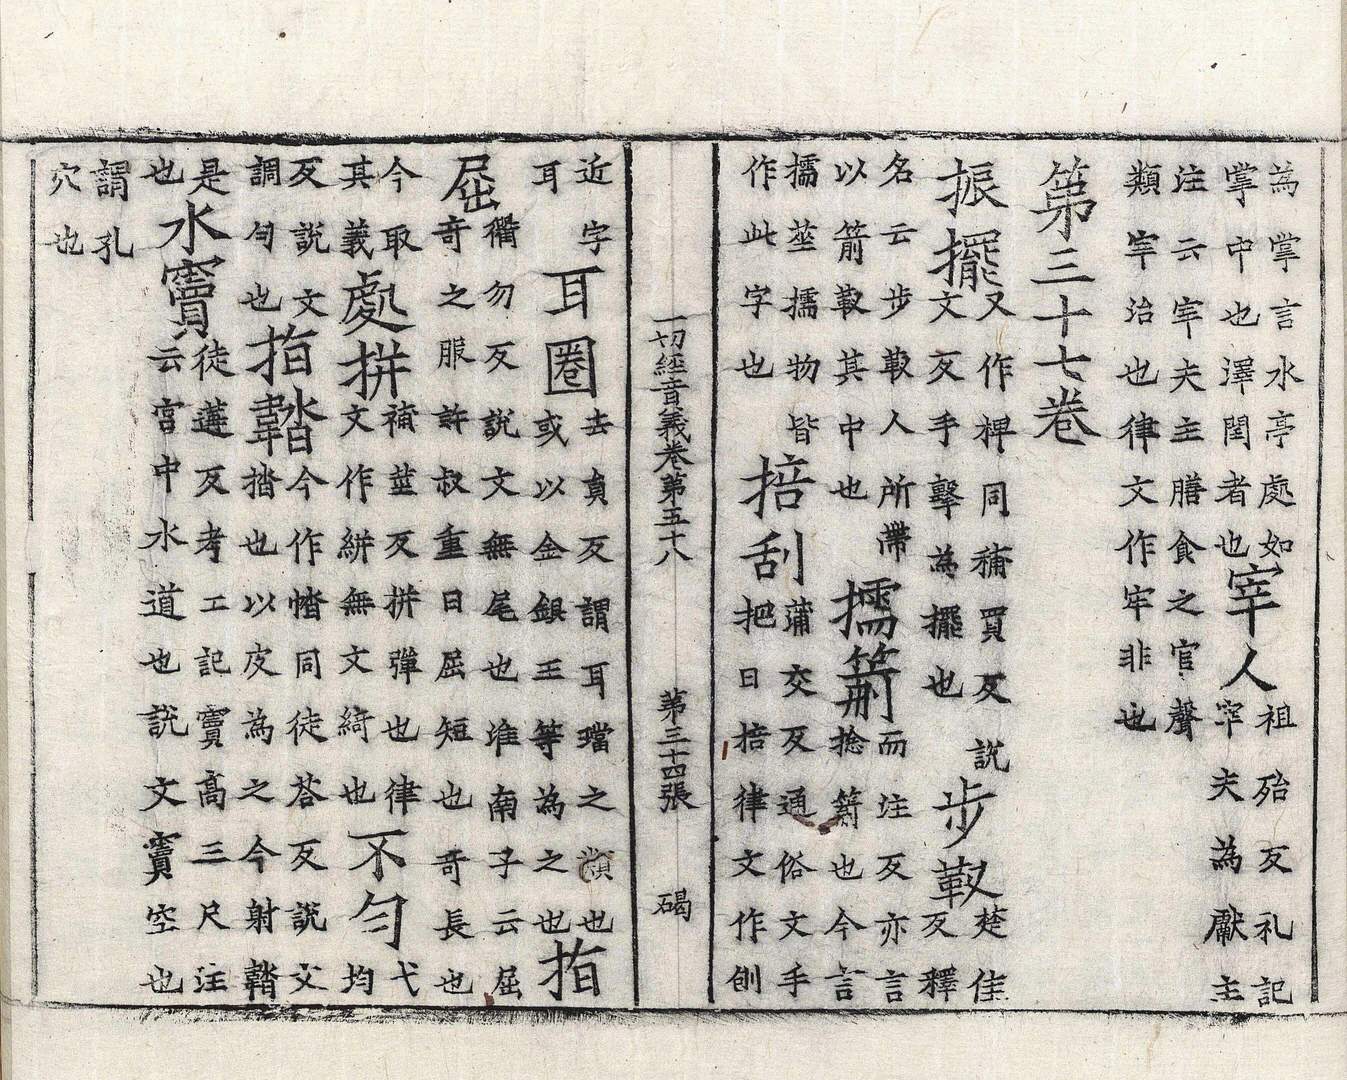 為掌言水亭處如
掌中也澤閏者也宰人祖殆反礼記
注云宰夫主膳食之官聲宰夫為獻主
類宰治也律文作牢非也
第三十七卷
振擺又作捭同補買反說
文反手擊為擺也步靫楚佳
反釋
名云步靫人所帶
以箭靫其中也擩箭而注反亦言
捻箭也今言
擩莝擩物皆
作此字也掊刮蒲交反通俗文手
把曰掊律文作刨
一切經音義卷第五十八 第三十四張 碣
近字
耳耳圈去貟反謂耳璫之類也
或以金銀玉等為之也指
屈衢勿反說文無尾也淮南子云屈
奇之服許叔重曰屈短也奇長也
今取
其義處拼補莖反拼彈也律
文作絣無文綺也不勻弋
均
反說文
調勻也指鞳今作㭼同徒荅反說文
揩也以皮為之今射鞳
是
也水竇徒遘反考工記竇高三尺注
云宮中水道也說文竇空也
謂孔
穴也